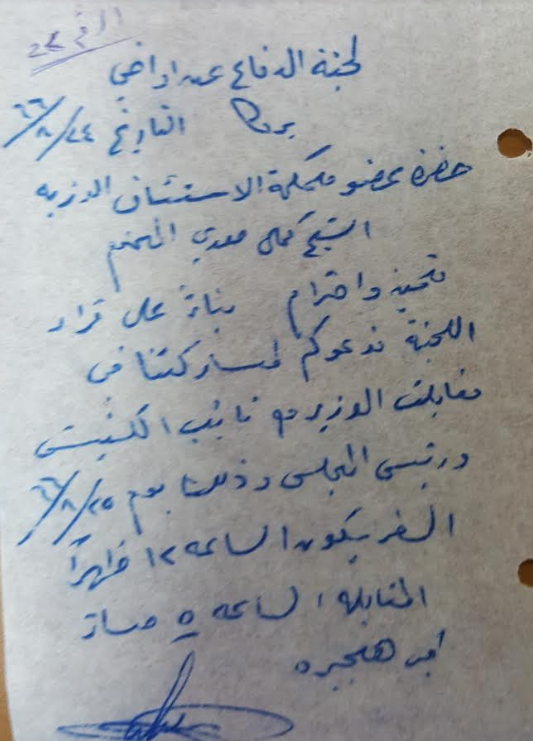 لجنة الدفاع عن اراضي
التاريخ ٢٤/٨/٦٦
حضرة عضو محكمة الاستئناف الدرزيه
الشيخ كمال معدي المحترم
تحية واحترام بناءً على قرار
اللجنة ندعوكم لمشاركتنا في
مقابلة الوزير مع نائب الكنيست
ورئيس المجلس وذلك يوم ٢٥/٨/٦٦
السفر يكون الساعه ١٢ ظهراً
المقابله الساعه ٥ مساءً